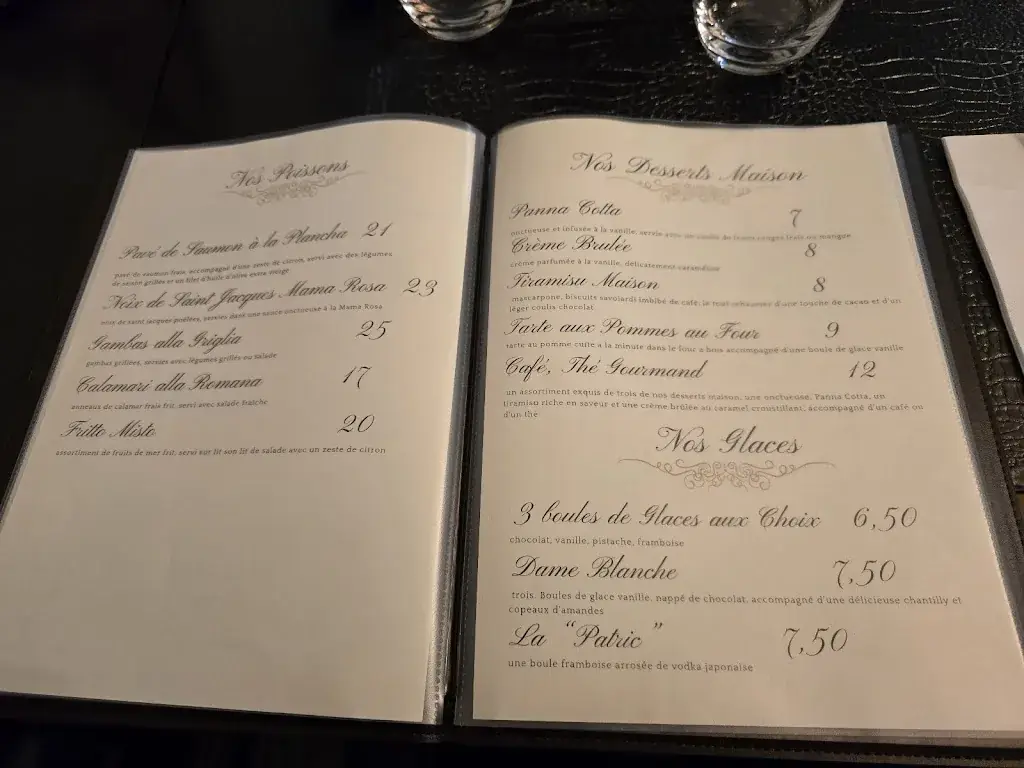 Nos Poissons
Pavé de Saumon à la Plancha 21
pavé de saumon frais, accompagné d'une zeste de citron, servi avec des légumes
de saison grillés et un filet d'huile d'olive extra vierge
Noix de Saint Jacques Mama Rosa 23
noix de saint jacques poêlées, servies dans une sauce onctueuse à la Mama Rosa
Gambas alla Griglia 25
gambas grillées, servies avec légumes grillés ou salade
Calamari alla Romana 17
anneaux de calamar frais frit, servi avec salade fraîche
Fritto Misto 20
assortiment de fruits de mer frit, servi sur lit son lit de salade avec un zeste de citron
Nos Desserts Maison
Panna Cotta 7
onctueuse et infusée à la vanille, servie avec de coulis de fruits rouges frais ou mangue
Crème Brulée 8
crème parfumée à la vanille, délicatement caramélisée
Tiramisu Maison 8
mascarpone, biscuits savoiardi imbibé de café, le tout rehausser d'une touche de cacao et d'un
léger coulis chocolat
Tarte aux Pommes au Four 9
tarte au pomme cuite a la minute dans le four a bois accompagné d'une boule de glace vanille
Café, Thé Gourmand 12
un assortiment exquis de trois de nos desserts maison, une onctueuse, Panna Cotta, un
tiramisu riche en saveur et une crème brûlée au caramel croustillant, accompagné d'un café ou
d'un thé
Nos Glaces
3 boules de Glaces aux Choix 6,50
chocolat, vanille, pistache, framboise
Dame Blanche 7,50
trois. Boules de glace vanille, nappé de chocolat, accompagné d'une délicieuse chantilly et
copeaux d'amandes
La "Patric" 7,50
une boule framboise arrosée de vodka japonaise